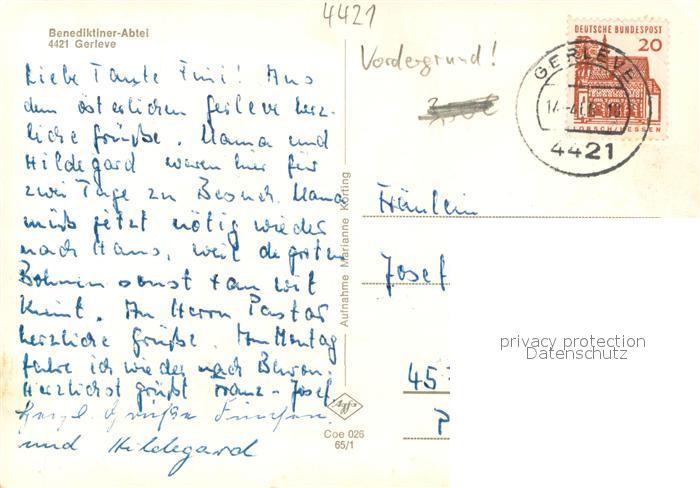 4421
Benediktiner-Abtei
4421 Gerleve
Vordergrund!
DEUTSCHE BUNDESPOST
20
LORSCH/HESSEN
GERLEVE
4421
Liebe Tante Fini! Aus
dem österlichen Gerleve herz-
liche Grüße. Mama und
Hildegard waren hier für
zwei Tage zu Besuch. Mama
muß jetzt nötig wieder
nach Haus, weil
sonst
. An Herrn Pastor
herzliche Grüße. Am Montag
fahre ich wieder nach
Herzlichst grüßt Franz-Josef
Herzl. Grüße
und Hildegard
Aufnahme Marianne Korting
Agfa
Coe 026
65/1
Fräulein
Josef
45
privacy protection
Datenschutz